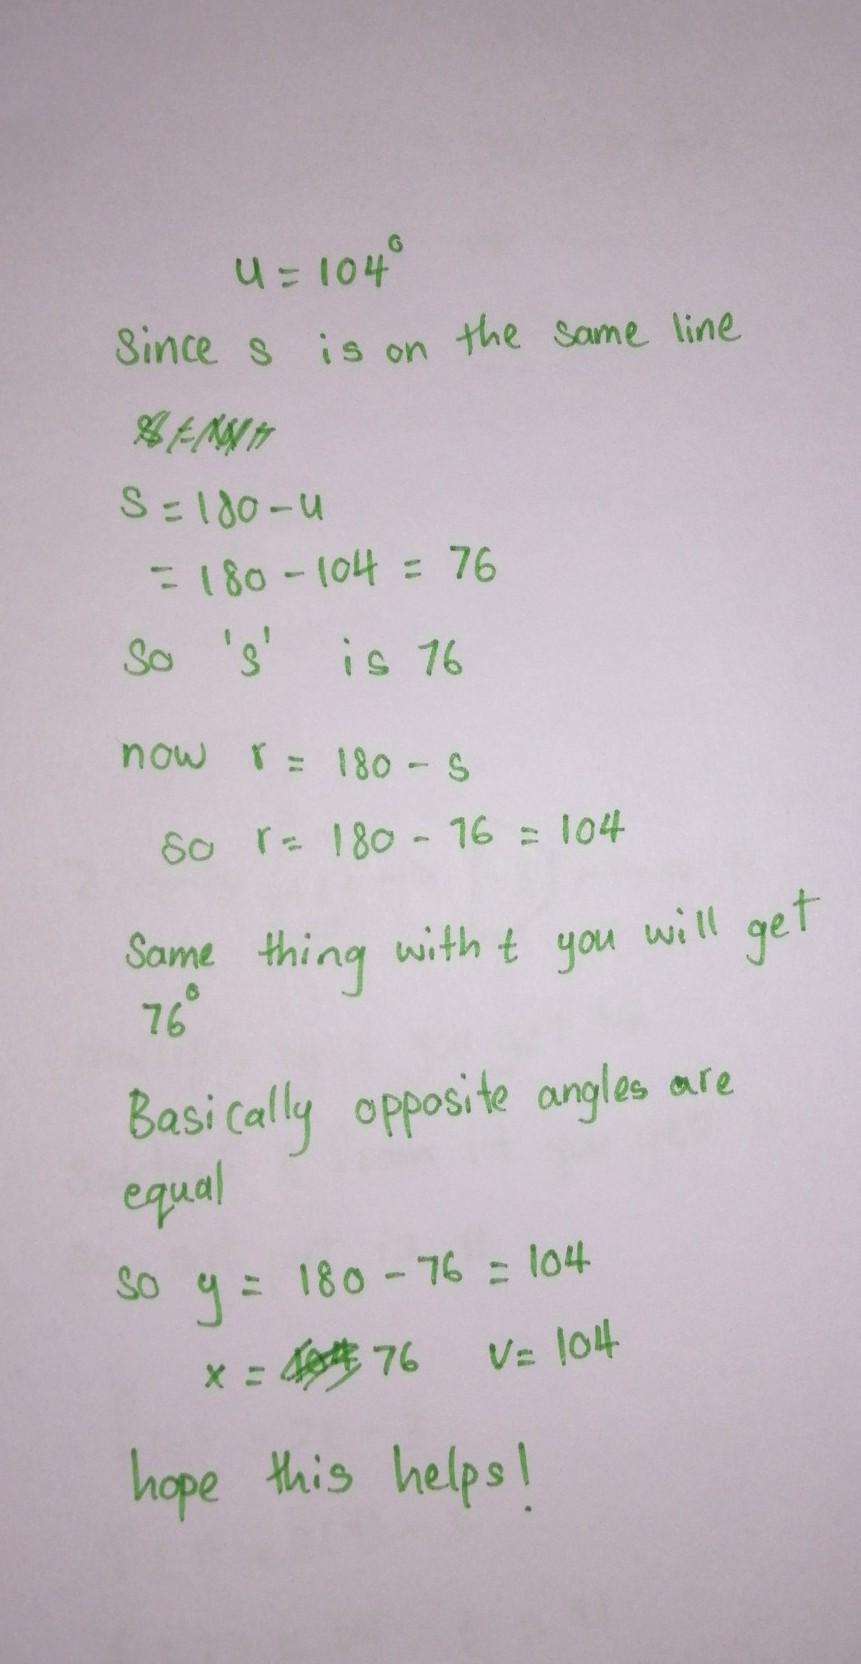 u = 104°
Since s is on the same line
S = 180 - u
= 180 - 104 = 76
So 's' is 76
now r = 180 - s
so r = 180 - 76 = 104
Same thing with t you will get
76°
Basically opposite angles are
equal
so y = 180 - 76 = 104
x = 76 v = 104
hope this helps!